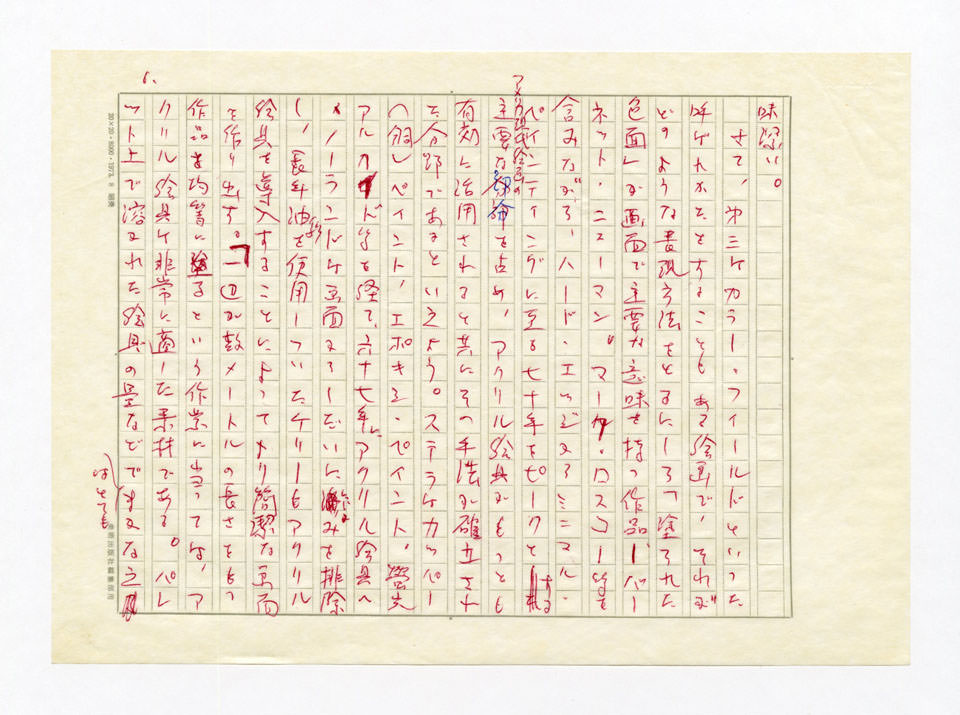 味深い。
さて、第三はカラー・フィールドといった
呼ばれかたをすることもある絵画で、それが
どのような表現方法をとるにしろ「塗られた
色面」が画面で主要な意味を持つ作品―バー
ネット・ニューマン。マーク・ロスコー等を
含みながら、ハード・エッジえるミニマル・
ペインティングに至る七十年をピークとする
アメリカ現代絵画の
主要な部分を占め、アクリル絵具がもっとも
有効に活用されると共にその手法が確立され
た分野であるといえよう。ステラはカッパー
(銅)ペイント、エポキシ・ペイント、螢光
アルカイド等を経て、六十七年にアクリル絵具へ
、ノーランドは画面える―だいにみを排除
し、長年油絵を使用していたケリーもアクリル
絵具を導入することによってより簡潔な画面
を作り出す。一辺が数メートルの長さをもつ
作品を均等に塗るという作業に当っては、ア
クリル絵具は非常に適した素材である。パレ
ット上で溶かれた絵具の量などでまかな
はとても
6.
20×20・